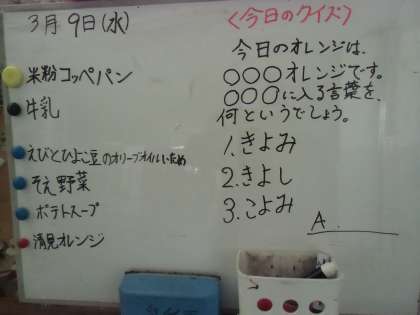 3月9日(水)
米粉コッペパン
牛乳
えびとひよこ豆のオリーブオイルいため
そえ野菜
ポテトスープ
清見オレンジ
〈今日のクイズ〉
今日のオレンジは、
○○○オレンジです。
○○○に入る言葉を、
何というでしょう。
1.きよみ
2.きよし
3.こよみ
A.